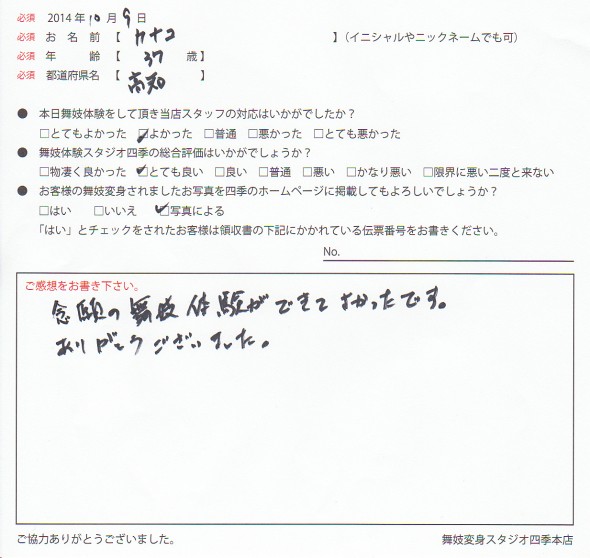 必須 2014年10月9日
必須 お名前【 カナコ 】（イニシャルやニックネームでも可）
必須 年齢【 37 歳】
必須 都道府県名【 高知 】
● 本日舞妓体験をして頂き当店スタッフの対応はいかがでしたか？
□とてもよかった ☑よかった □普通 □悪かった □とても悪かった
● 舞妓体験スタジオ四季の総合評価はいかがでしょうか？
□物凄く良かった ☑とても良い □良い □普通 □悪い □かなり悪い □限界に悪い二度と来ない
● お客様の舞妓変身されましたお写真を四季のホームページに掲載してもよろしいでしょうか？
□はい □いいえ ☑写真による
「はい」とチェックをされたお客様は領収書の下記にかかれている伝票番号をお書きください。
No.
ご感想をお書き下さい。
念願の舞妓体験ができてよかったです。
ありがとうございました。
ご協力ありがとうございました。 舞妓変身スタジオ四季本店